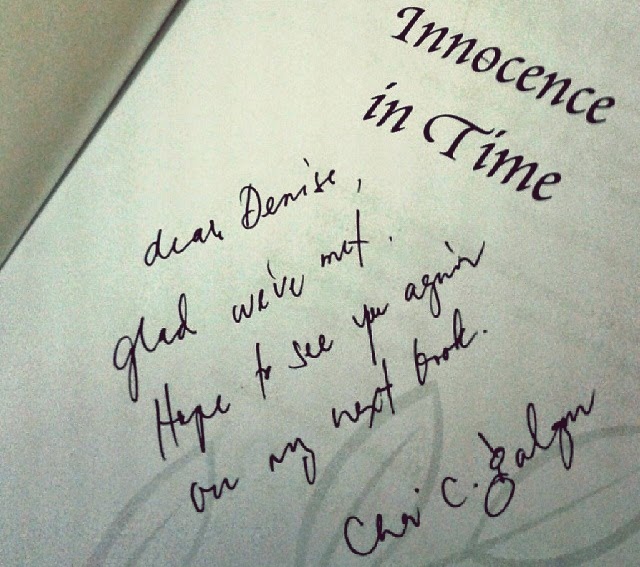 Innocence
in Time
dear Denise,
glad we've met.
Hope to see you again
on my next book.
C.